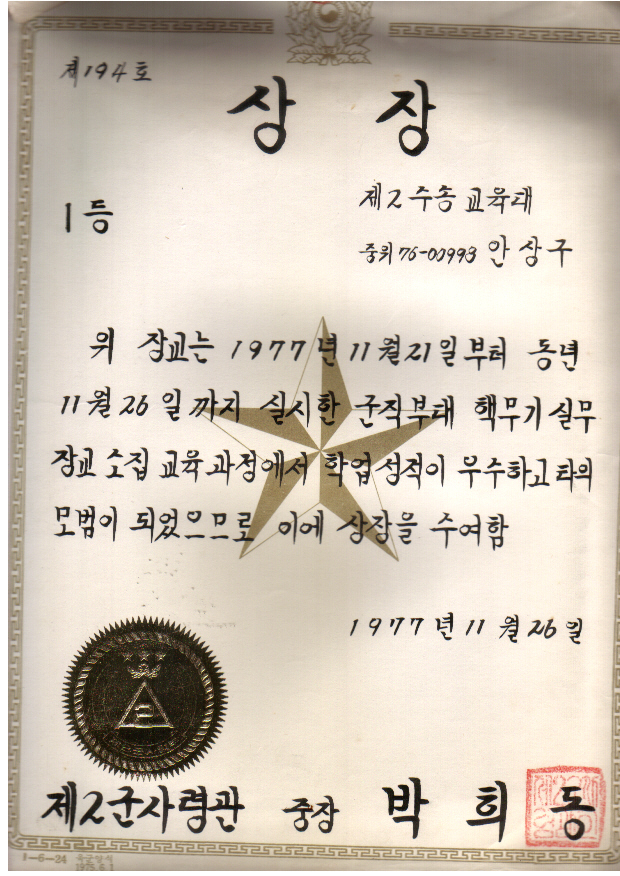 제194호
상 장
1등
제2수송교육대
중위 76-00993 안상구
위 장교는 1977년 11월 21일부터 동년
11월 26일까지 실시한 군직부대 핵무기 실무
장교 소집 교육과정에서 학업성적이 우수하고 타의
모범이 되었으므로 이에 상장을 수여함
1977년 11월 26일
제2군사령관 중장 박 희 동
1-6-24 육군양식
1975.6.1